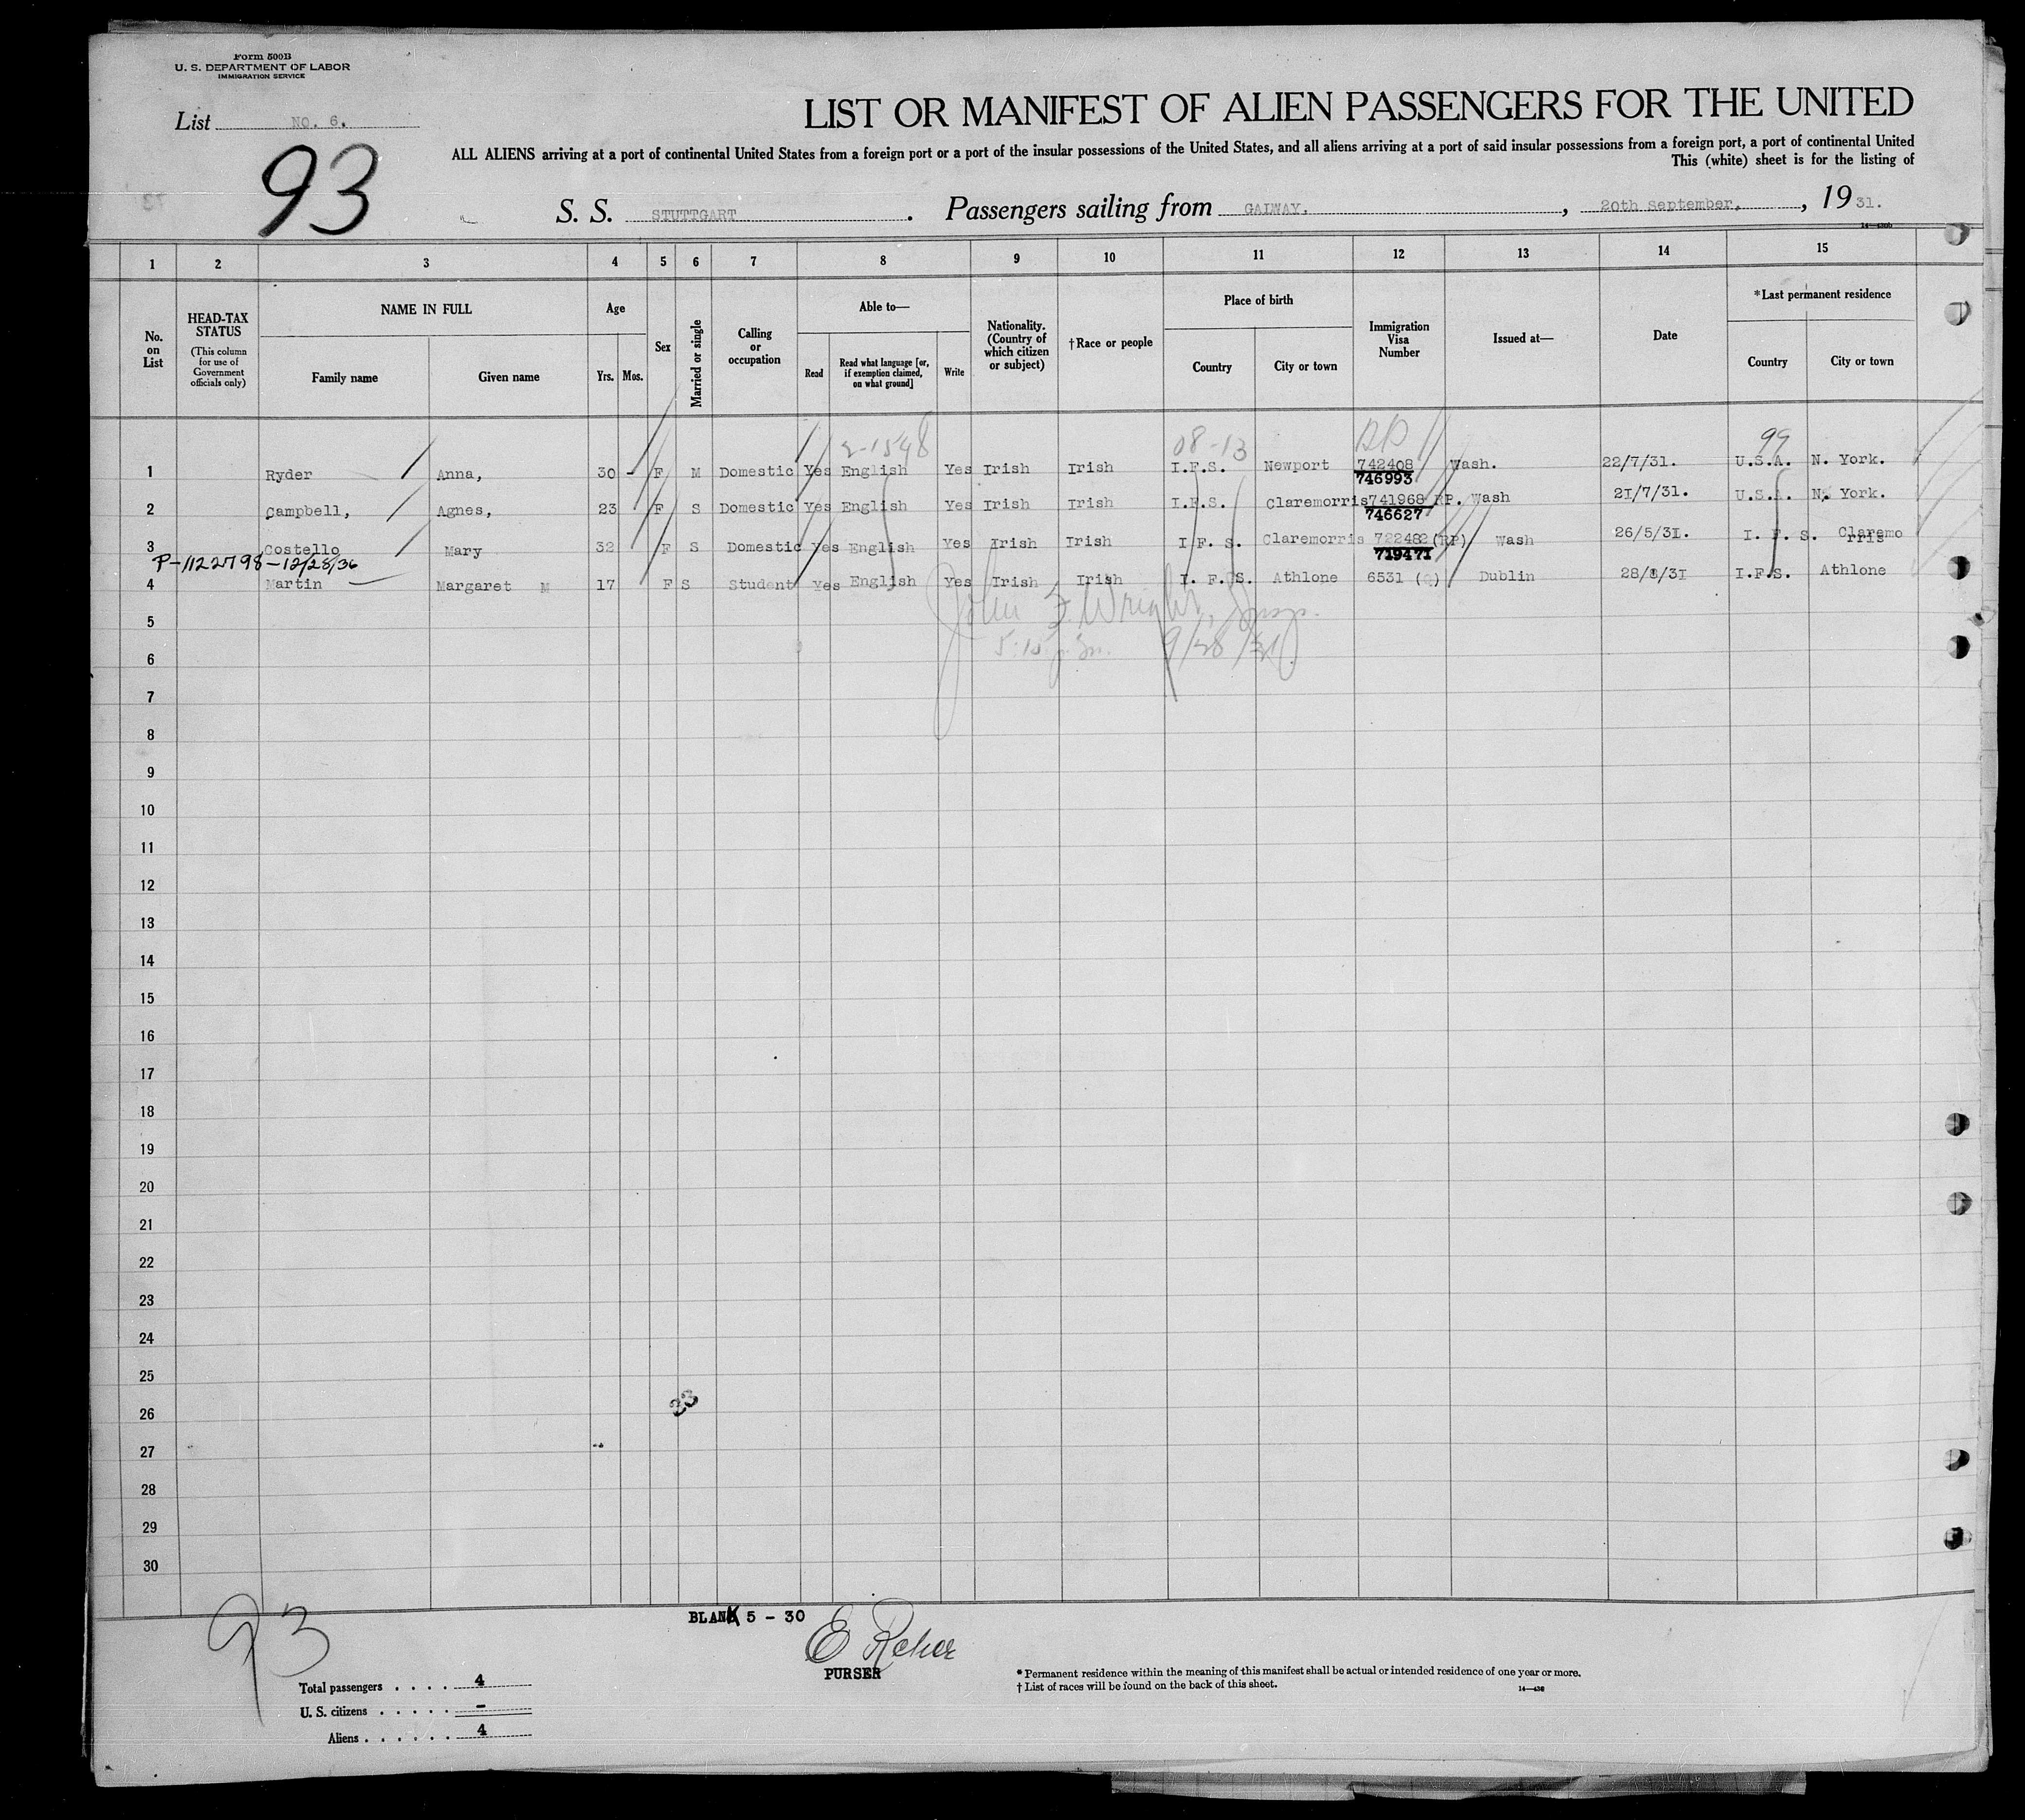 Form 500B
U. S. DEPARTMENT OF LABOR
IMMIGRATION SERVICE
List NO. 6.
93
LIST OR MANIFEST OF ALIEN PASSENGERS FOR THE UNITED
ALL ALIENS arriving at a port of continental United States from a foreign port or a port of the insular possessions of the United States, and all aliens arriving at a port of said insular possessions from a foreign port, a port of continental United
This (white) sheet is for the listing of
S. S. STUTTGART . Passengers sailing from GALWAY. , 20th September. , 19 31.
1 2 3 4 5 6 7 8 9 10 11 12 13 14 15
No. on List
HEAD-TAX STATUS
(This column for use of Government officials only)
NAME IN FULL
Family name Given name
Age
Yrs. Mos.
Sex
Married or single
Calling or occupation
Able to—
Read
Read what language [or, if exemption claimed, on what ground]
Write
Nationality. (Country of which citizen or subject)
†Race or people
Place of birth
Country City or town
Immigration Visa Number
Issued at—
Date
*Last permanent residence
Country City or town
2-1548 08-13 RP 99
1 Ryder Anna, 30 - F M Domestic Yes English Yes Irish Irish I.F.S. Newport 742408 Wash. 22/7/31. U.S.A. N. York.
746993
2 Campbell, Agnes, 23 F S Domestic Yes English Yes Irish Irish I.F.S. Claremorris 741968 RP. Wash 21/7/31. U.S.A. N. York.
746627
3 Costello Mary 32 F S Domestic Yes English Yes Irish Irish I. F. S. Claremorris 722482 (RP) Wash 26/5/31. I. F. S. Claremo
rris
719471
P-1122798-12/28/36
4 Martin Margaret M 17 F S Student Yes English Yes Irish Irish I. F. S. Athlone 6531 (Q) Dublin 28/8/31 I.F.S. Athlone
John F. Wright, Insp.
5:15 p.m. 9/28/31
5
6
7
8
9
10
11
12
13
14
15
16
17
18
19
20
21
22
23
24
25
26
27
28
29
30
33
BLANK 5 - 30
93
E Reher
PURSER
Total passengers . . . . . 4
U. S. citizens . . . . . -
Aliens . . . . . . 4
* Permanent residence within the meaning of this manifest shall be actual or intended residence of one year or more.
† List of races will be found on the back of this sheet.